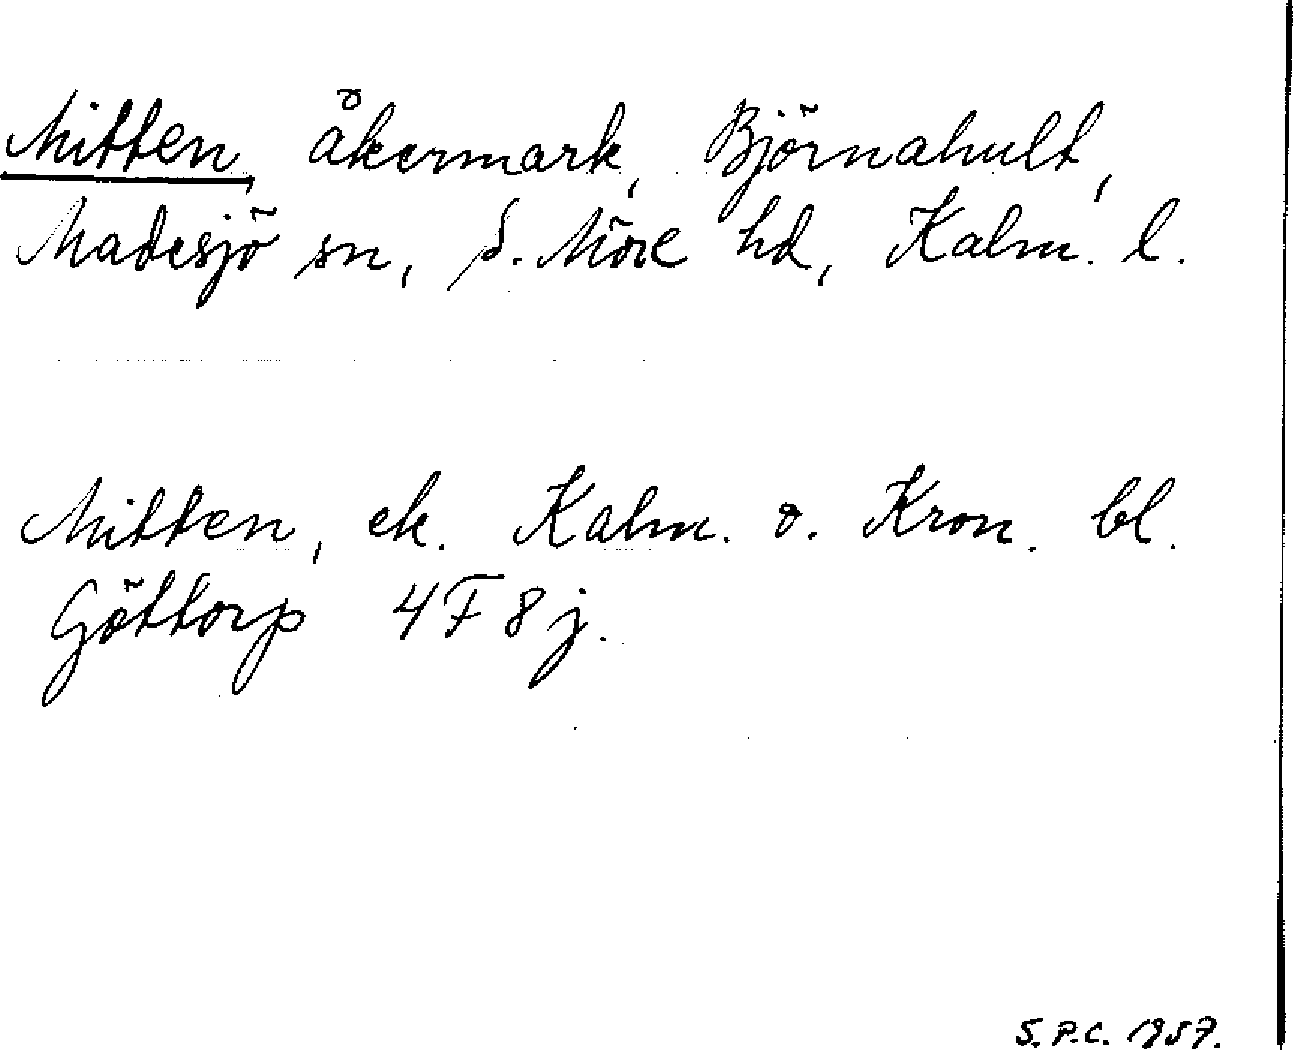 Mitten, åkermark, Björnahult,
Madesjö sn, S. Möre hd, Kalm. l.
Mitten, ek. Kalm. o. Kron. bl.
Göttorp 4F8j.
S.P.C. 1957.